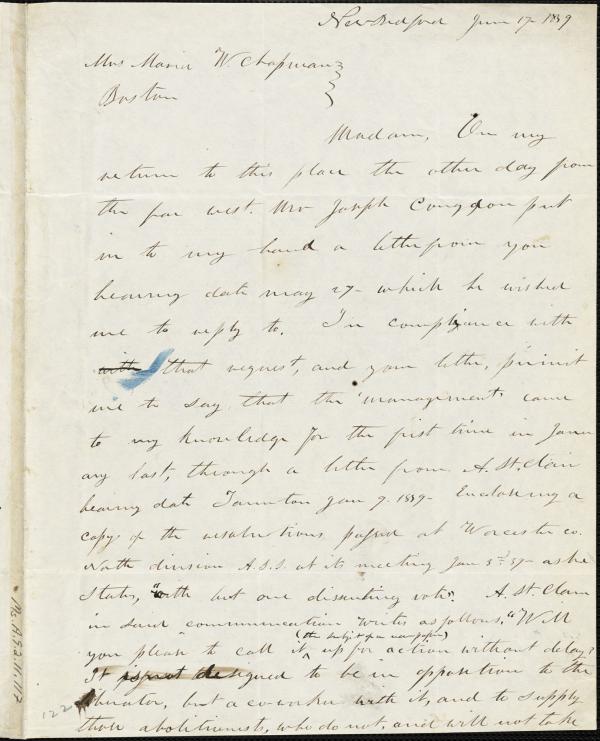 New Bedford June 17 - 1839
Mrs Maria W. Chapman
Boston
Madam, On my
return to this place the other day from
the far west. Mr Joseph Congdon put
in to my hand a letter from you
bearing date may 27 - which he wished
me to reply to. In compliance with
with that request, and your letter, permit
me to say that the "management" came
to my knowledge for the first time in Janu
ary last, through a letter from A. St. Clair
bearing date Taunton Jan 9. 1839 - Enclosing a
copy of the resolutions passed at Worcester co.
North division A.S.S. at its meeting Jan 3d 39 - as he
States, "with but one dissenting vote". A. St. Clair
in said communication writes as follows. "Will
(the subject of a new paper)
you please to call it up for action without delay?
It is not designed to be in opposition to the
Liberator, but a co-worker with it, and to supply
those abolitionists, who do not, and will not take
Ms. A.9.2.11.117
122